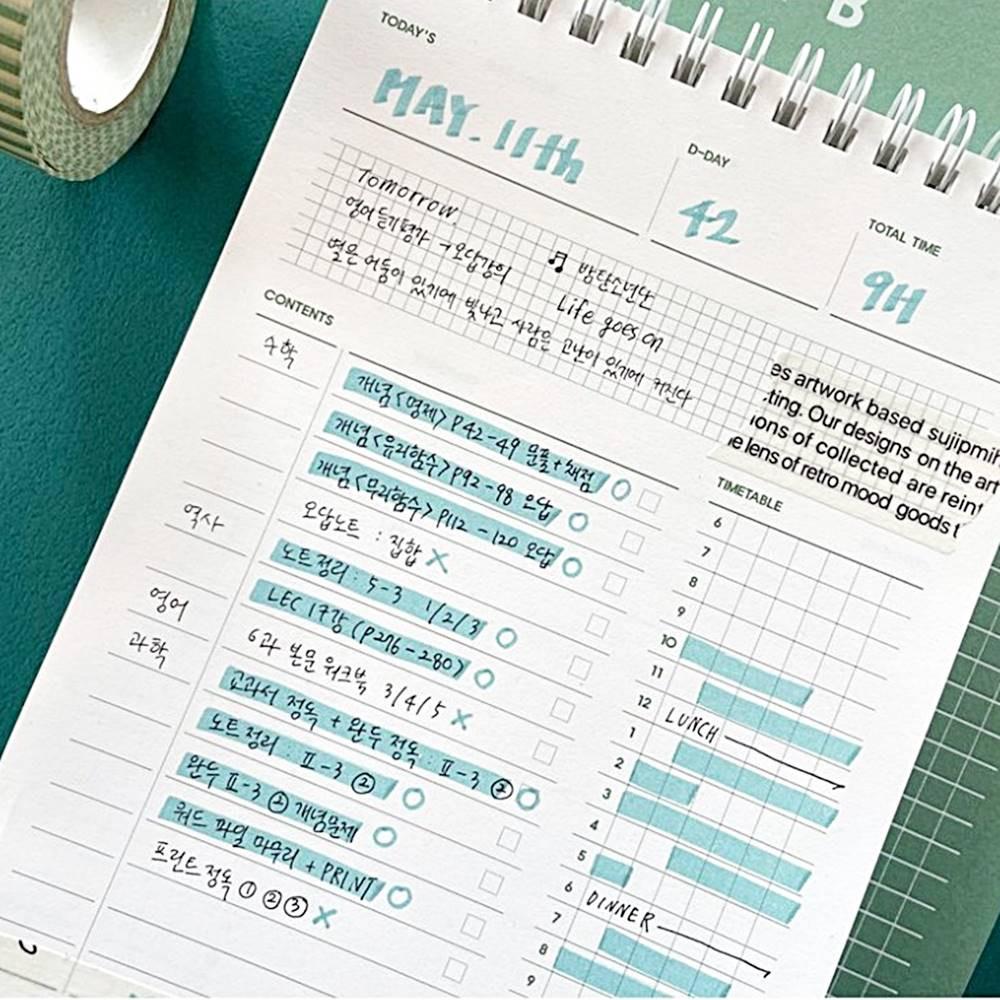 B
TODAY'S
MAY. 11th
D-DAY
42
TOTAL TIME
9H
Tomorrow.
영어듣기평가 → 오답강의
♬ 방탄소년단
Life goes on
별은 어둠이 있기에 빛나고 사람은 고난이 있기에 커진다
es artwork based sujipmih
ting. Our designs on the art
ions of collected are reint
e lens of retro mood goods t
CONTENTS
수학
개념<명제> P42-49 문풀+채점 O
개념<유리함수> P92-98 오답 O
개념<무리함수> P112-120 오답 O
오답노트 : 집합 X
역사
노트정리 : 5-3 1/2/3 O
LEC 17강 (P276-280) O
영어
6과 본문 워크북 3/4/5 X
과학
교과서 정독 + 완두 정독 : II-3 ② O
노트정리 : II-3 ② O
완두 II-3 ② 개념문제 O
워드 파일 마무리 + PRINT O
프린트 정독 ① ② ③ X
TIMETABLE
6
7
8
9
10
11
12 LUNCH
1
2
3
4
5
6 DINNER
7
8
9